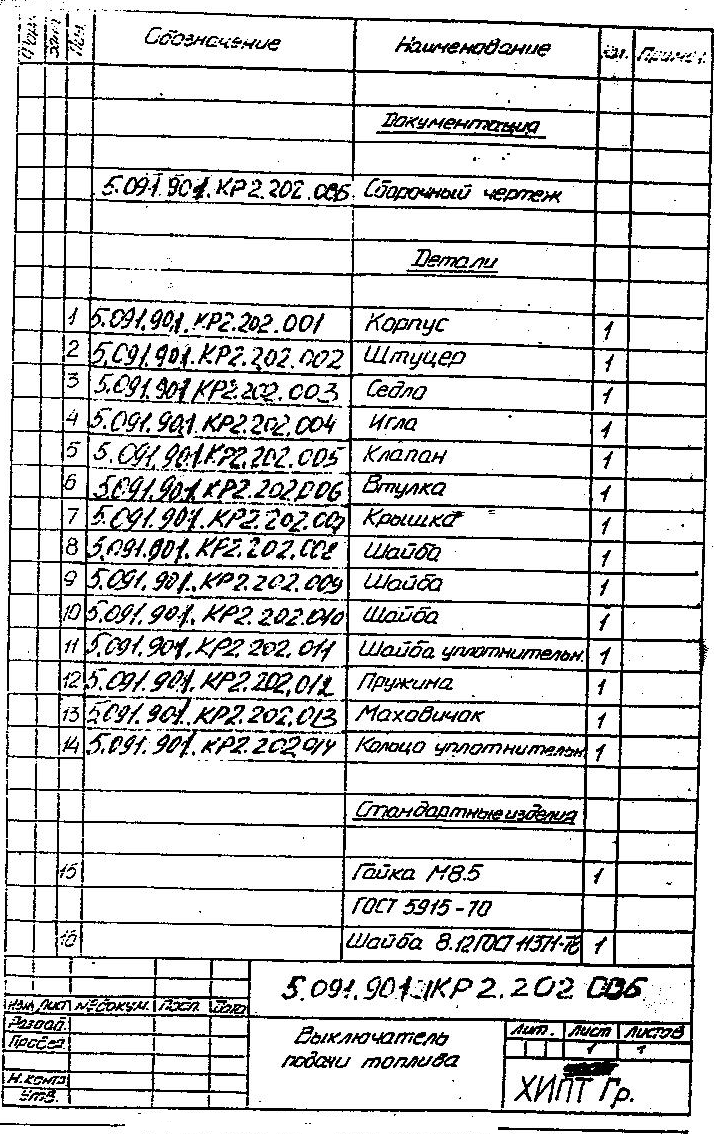 Форм. Зона Поз. Обозначение Наименование Кол. Примеч.
Документация
5.091.901.КР2.202.00СБ Сборочный чертеж
Детали
1 5.091.901.КР2.202.001 Корпус 1
2 5.091.901.КР2.202.002 Штуцер 1
3 5.091.901 КР2.202.003 Седло 1
4 5.091.901.КР2.202.004 Игла 1
5 5.091.901.КР2.202.005 Клапан 1
6 5.091.901.КР2.202.006 Втулка 1
7 5.091.901.КР2.202.007 Крышка 1
8 5.091.901.КР2.202.008 Шайба 1
9 5.091.901.КР2.202.009 Шайба 1
10 5.091.901.КР2.202.010 Шайба 1
11 5.091.901.КР2.202.011 Шайба уплотнительн. 1
12 5.091.901.КР2.202.012 Пружина 1
13 5.091.901.КР2.202.013 Маховичок 1
14 5.091.901.КР2.202.014 Кольцо уплотнительн. 1
Стандартные изделия
15 Гайка М8.5 1
ГОСТ 5915-70
16 Шайба 8.12 ГОСТ 11371-78 1
5.091.901.КР2.202
Изм Лист № докум. Подп. Дата
Разраб.
Провер.
Н.контр
Утв.
Выключатель
подачи топлива
Лит. Лист Листов
1 1
ХИПТ Гр.